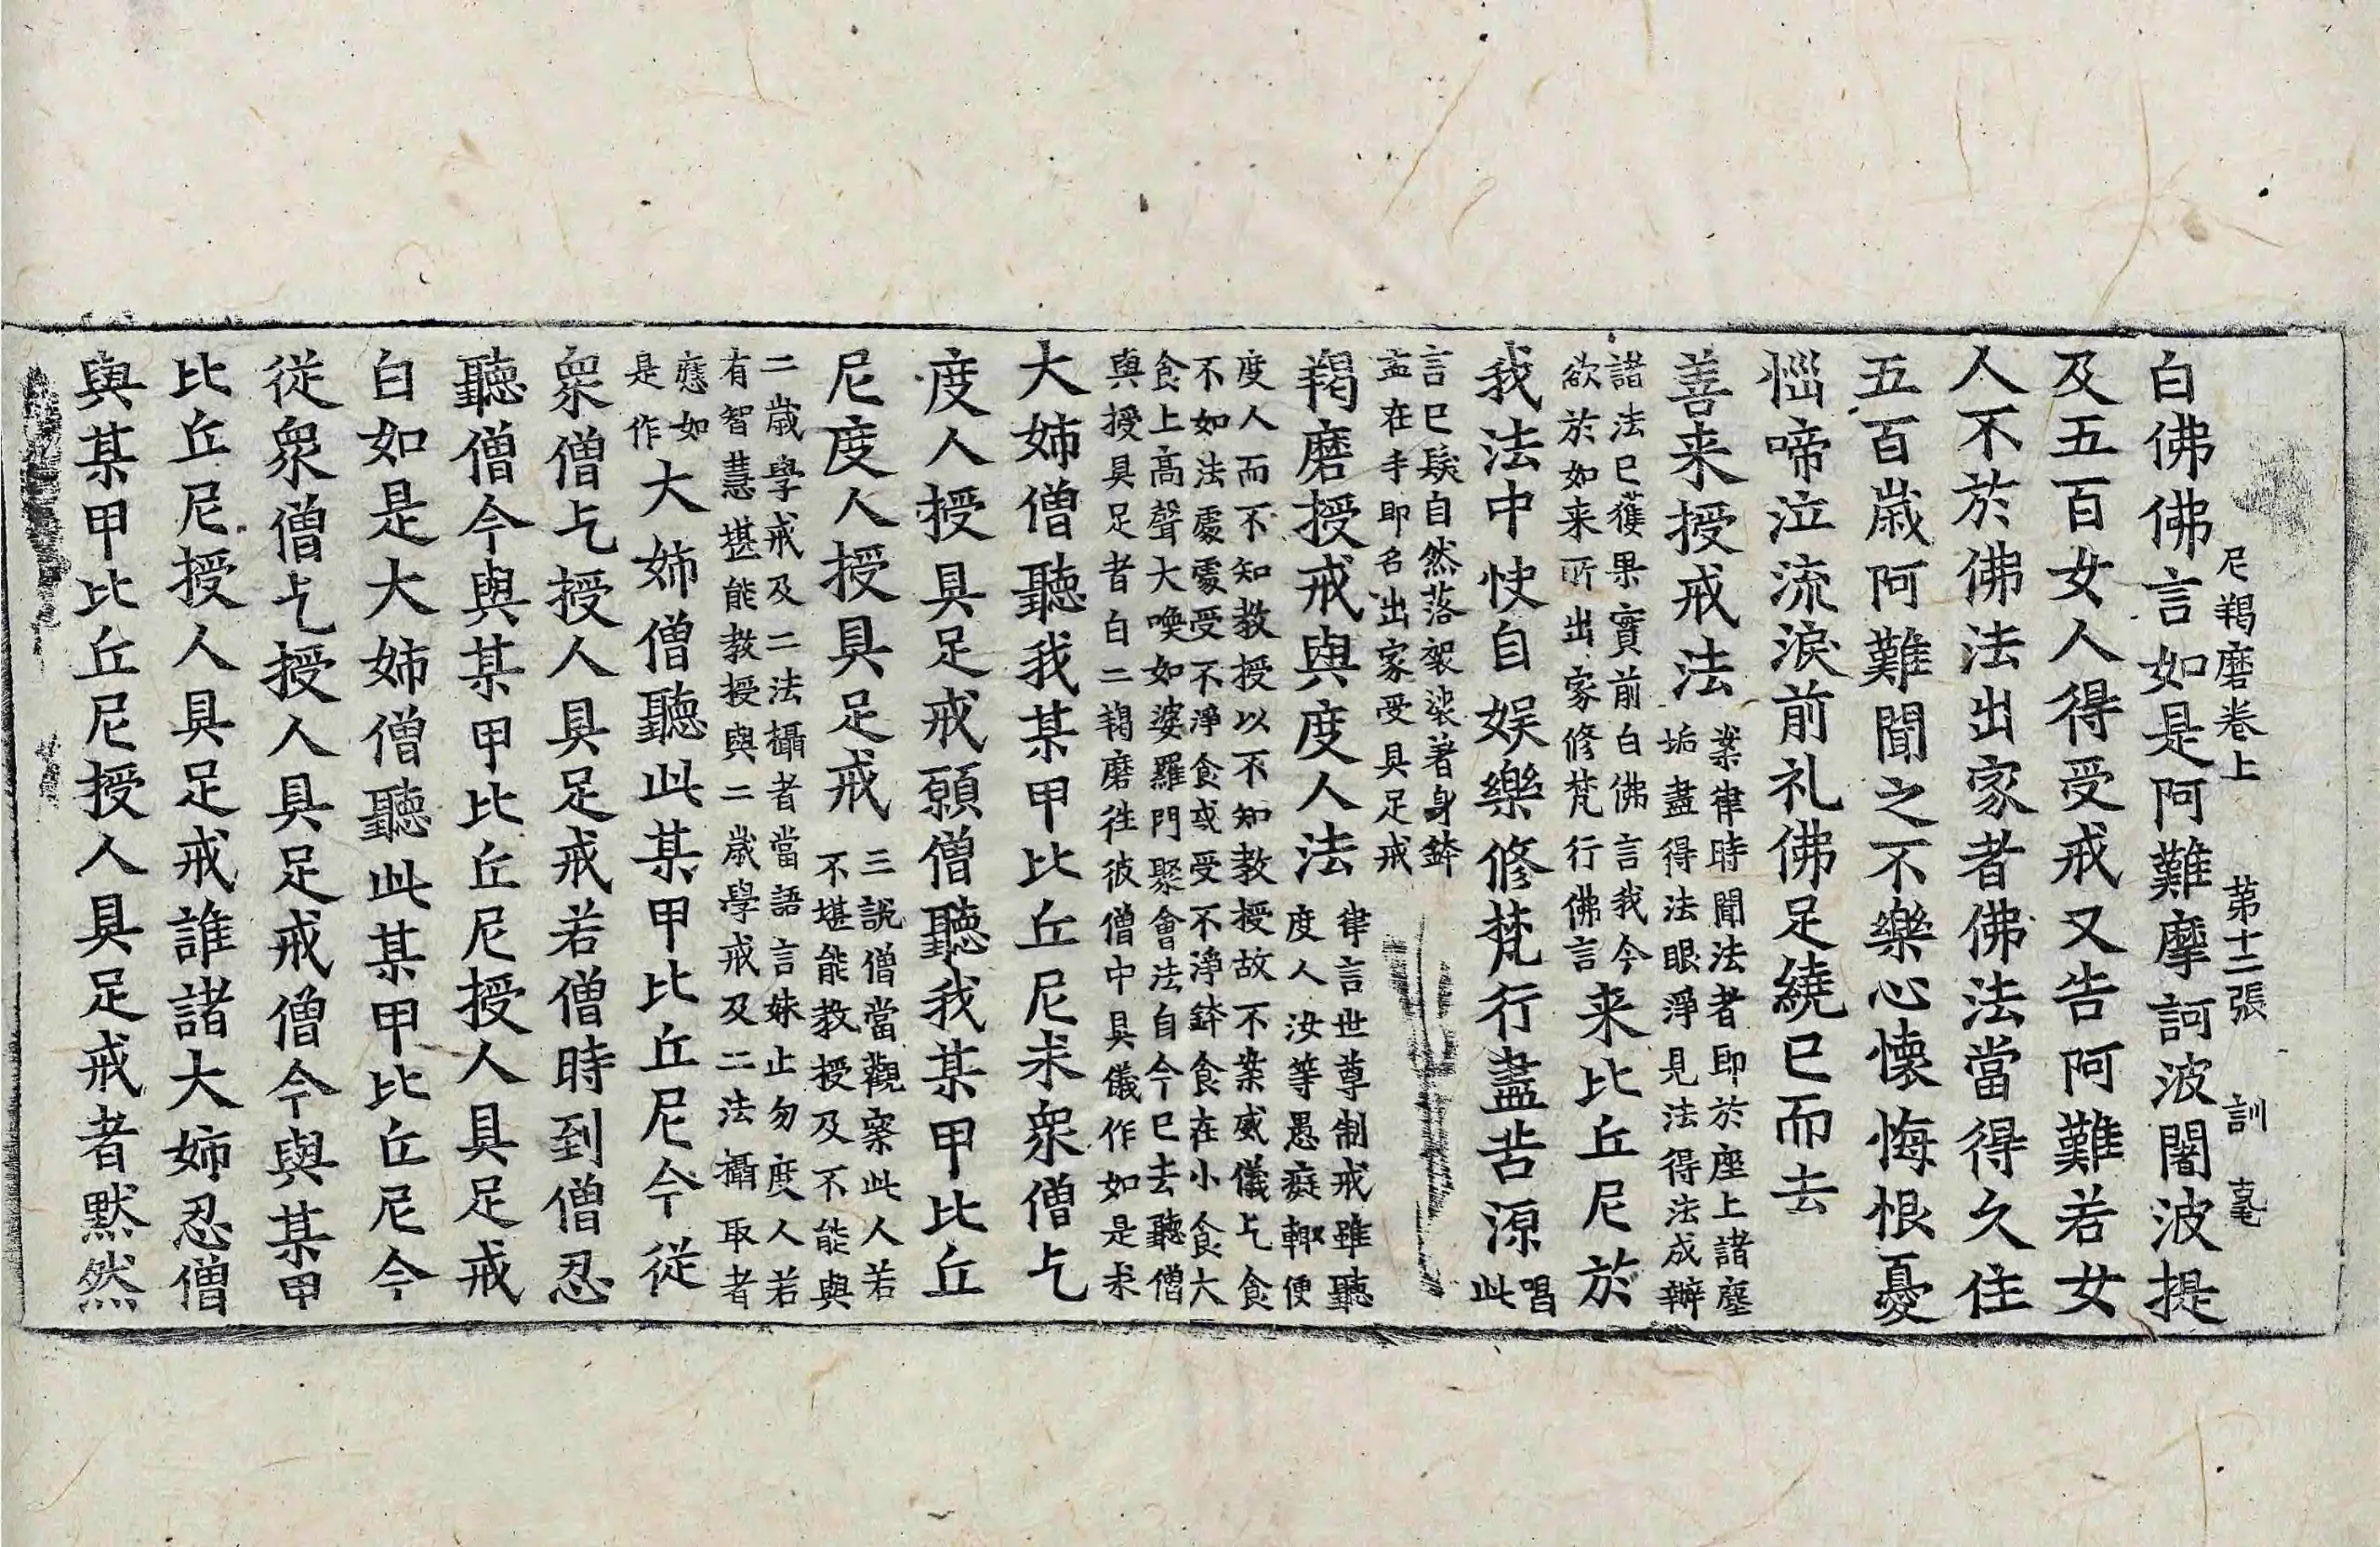 尼羯磨卷上 第十二張 訓 毫
白佛佛言如是阿難摩訶波闍波提
及五百女人得受戒又告阿難若女
人不於佛法出家者佛法當得久住
五百歲阿難聞之不樂心懷悔恨憂
惱啼泣流淚前礼佛足繞已而去
善来授戒法
案律時聞法者即於座上諸塵
垢盡得法眼淨見法得法成辦
諸法已獲果實前白佛言我今
欲於如来所出家修梵行佛言
来比丘尼於
我法中快自娛樂修梵行盡苦源
唱
此
言已髮自然落袈裟著身鉢
盂在手即名出家受具足戒
羯磨授戒與度人法
律言世尊制戒雖聽
度人汝等愚癡輒便
度人而不知教授以不知教授故不案威儀乞食
不如法處處受不淨食或受不淨鉢食在小食大
食上高聲大喚如婆羅門聚會法自今已去聽僧
與授具足者白二羯磨往彼僧中具儀作如是求
大姊僧聽我某甲比丘尼求衆僧乞
度人授具足戒願僧聽我某甲比丘
尼度人授具足戒
三說僧當觀察此人若
不堪能教授及不能與
二歲學戒及二法攝者當語言妹止勿度人若
有智慧堪能教授與二歲學戒及二法攝取者
應如
是作
大姊僧聽此某甲比丘尼今從
衆僧乞授人具足戒若僧時到僧忍
聽僧今與某甲比丘尼授人具足戒
白如是大姊僧聽此某甲比丘尼今
從衆僧乞授人具足戒僧今與某甲
比丘尼授人具足戒誰諸大姊忍僧
與某甲比丘尼授人具足戒者默然